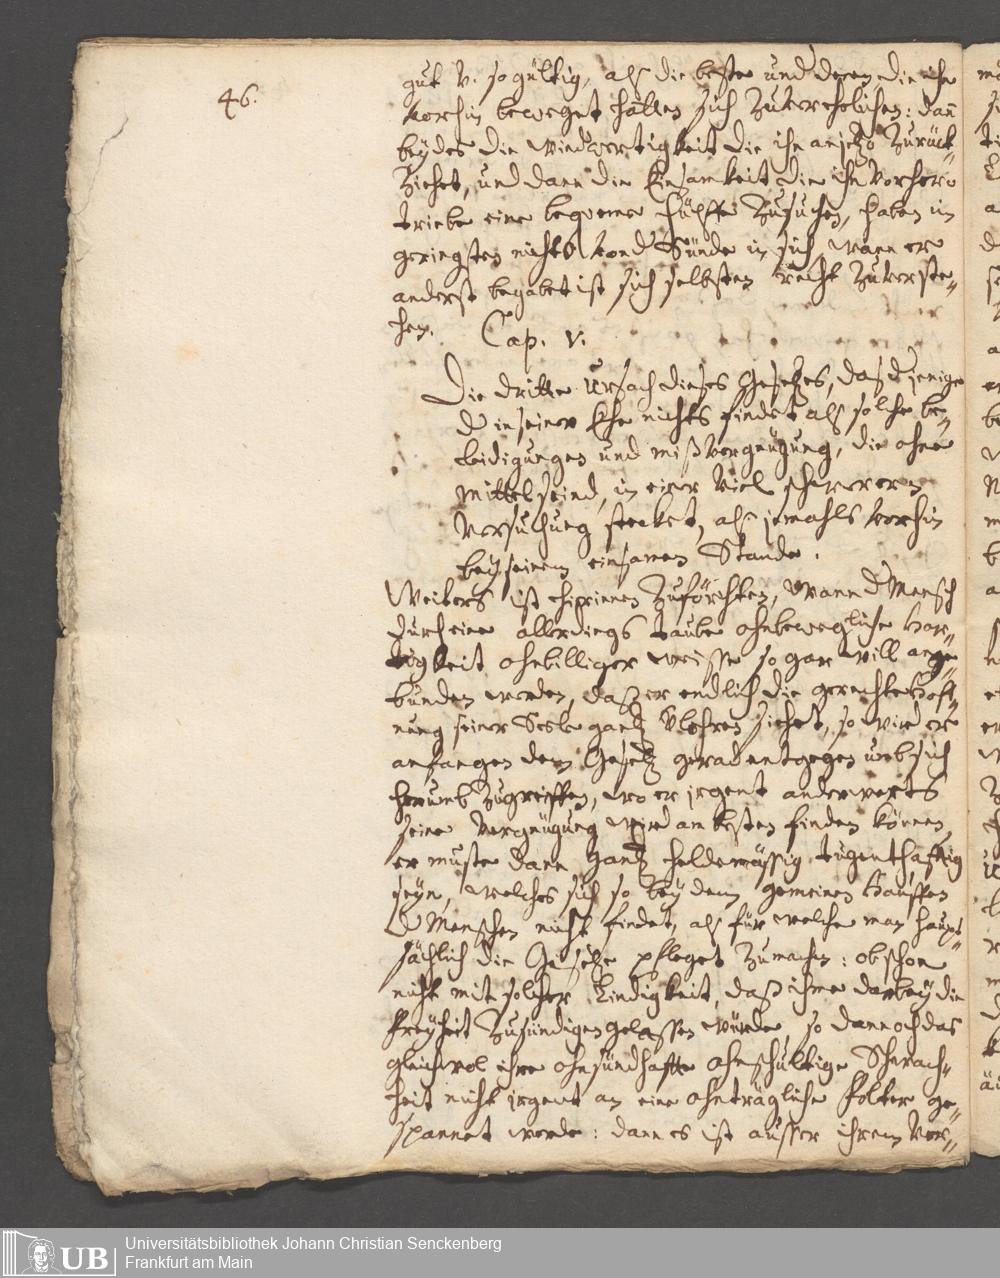 46.
gut v. so gültig, als die beste und deren die ihn
vorhin beweget hatten sich zuverehelichen: dañ
beydes die Wiederwertigkeit die ihn anjetzo zurück=
ziehet, und dann die Einsamkeit die ihn vorhero
triebe eine bequeme Hülffe zusuchen, haben im
geringsten nichts von d Sünde in sich, wann er
anderst begabet ist sich selbsten recht zuverste=
hen. Cap. V.
Die dritte Ursach dieses Gesetzes, daß d jenige
d in seiner Ehe nichts findet als solche be=
leidigungen und mißvergnügung, die ohne
mittel seind, in einer viel schwerern
Versuchung stecket, als jemahls vorhin
bey seinem einsamen Stande.
Weiters ist hierinnen zuförchten, Wann d Mensch
durch eine allerdings taube ohnbewegliche Har=
tigkeit ohnbilliger weisse so gar will ange=
bunden werden, daß er endlich die gerechte Hoff=
nung seiner Seele gantz verlohren siehet, so wird er
anfangen dem Gesetz gerad entgegen umb sich
herumb zugreiffen, wo er irgent anderwerts
seine Vergnügung wird am besten finden können,
er muste dann gantz heldemässig tugenthafftig
seyn, welches sich so bey dem gemeinen Hauffen
d Menschen nicht findet, als für welche man haupt=
sächlich die Gesetze pfleget zumachen: obschon
nicht mit solcher Lindigkeit, daß ihme darbey die
Freyheit zusündigen gelassen würde, so dannoch das
gleichwol ihre ohnsündhaffte ohnschultige Schwach=
heit nicht irgent an eine ohnträgliche Folter ge=
spannet werde: dann es ist ausser ihrem Ver=
UB
Universitätsbibliothek Johann Christian Senckenberg
Frankfurt am Main